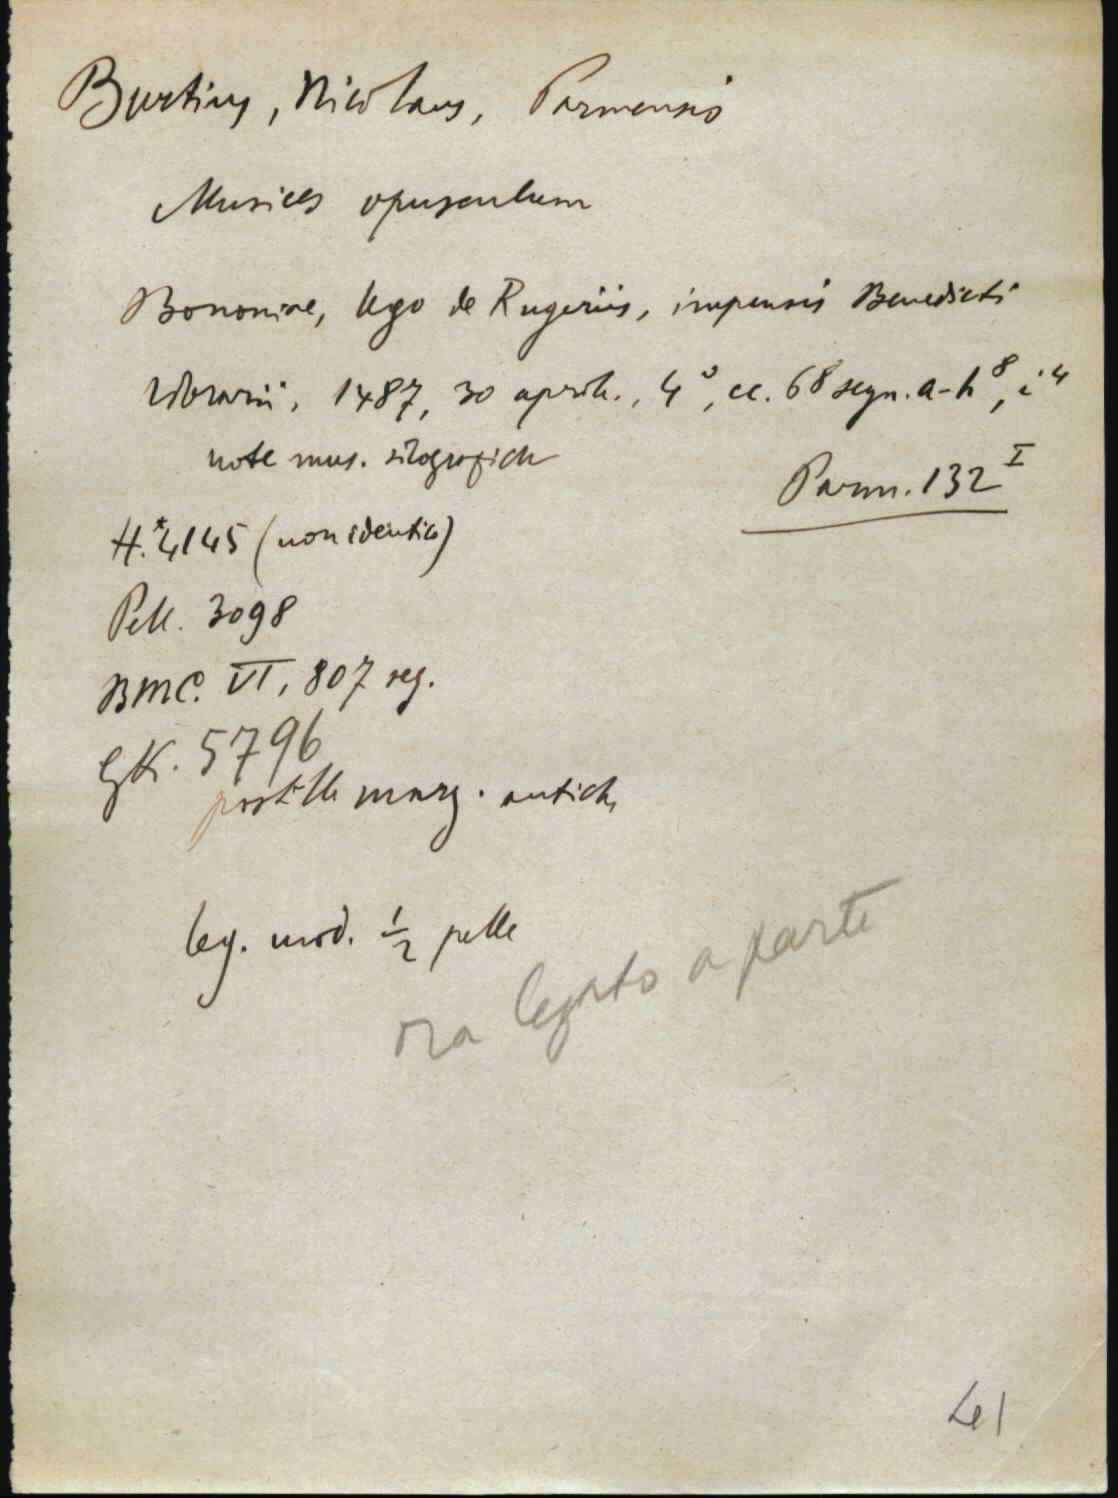 Burtius, Nicolaus, Parmensis
Musices opusculum
Bononiae, Ugo de Rugeriis, impensis Benedicti
librarii, 1487, 30 april., 4°, cc. 68 segn. a-h⁸, i⁴
note mus. silografiche
Parm. 132 I
H.*4145 (non identico)
Pell. 3098
BMC. VI, 807 seg.
GK. 5796
postille marg. antiche
leg. mod. ½ pelle
ora legato a parte
41